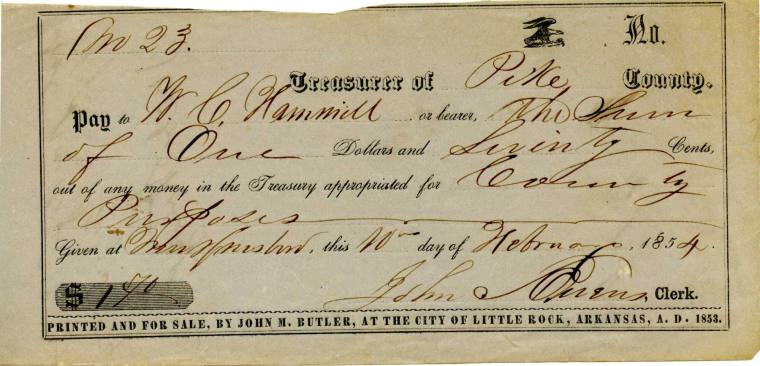 No 23. No.
Treasurer of Pike County.
Pay to W. C. Hammill or bearer, the Sum
of One Dollars and Seventy Cents,
out of any money in the Treasury appropriated for County
Purposes
Given at Murfreesboro, this 10th day of February, 1854.
$ 1 70 John Owens, Clerk.
PRINTED AND FOR SALE, BY JOHN M. BUTLER, AT THE CITY OF LITTLE ROCK, ARKANSAS, A. D. 1853.